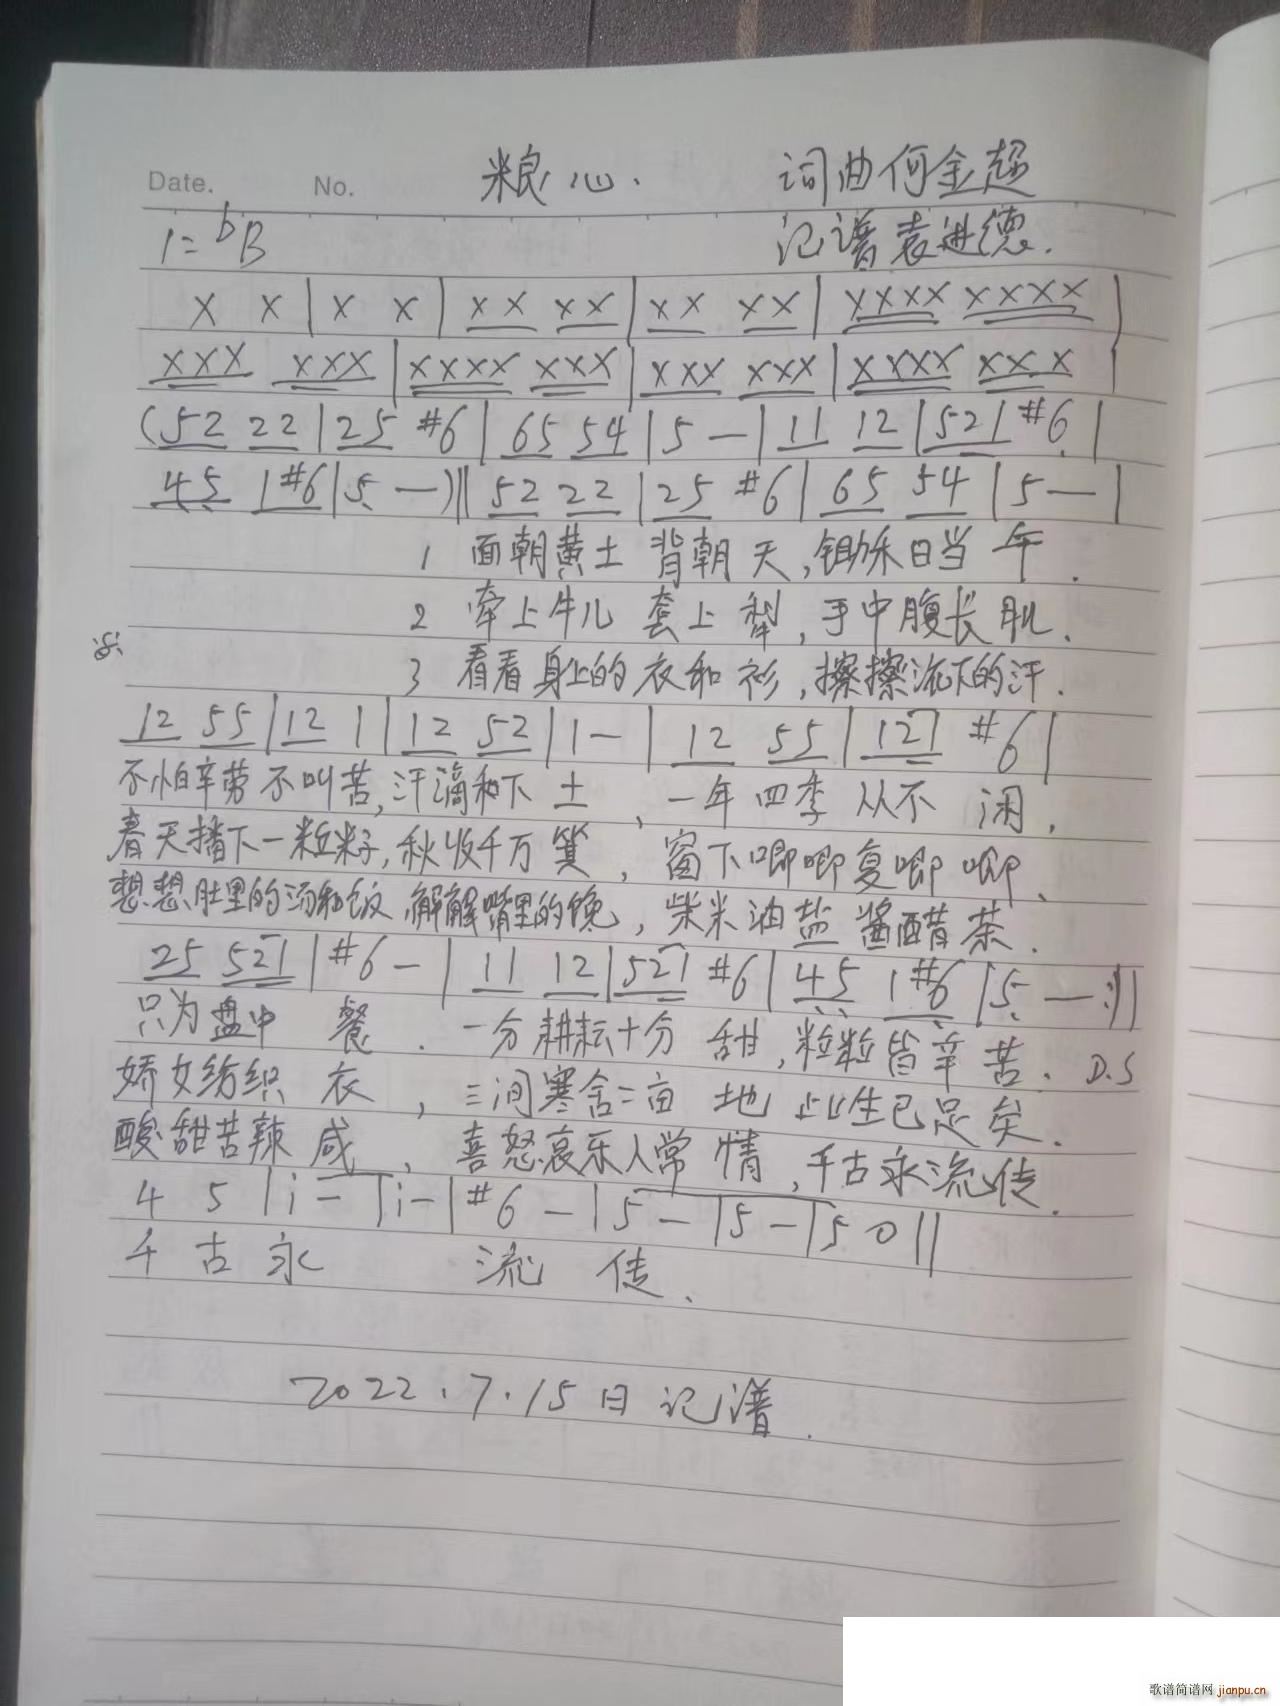 Date. No. 粮心. 词曲何金超
1=bB 记谱袁进德.
X X | X X | XX XX | XX XX | XXXX XXXX |
XXX XXX | XXXX XXX | XXX XXX | XXXX XXX |
(52 22 | 25 #6 | 65 54 | 5 — | 11 12 | 521 #6 |
45 1#6 | 5 —)‖ 52 22 | 25 #6 | 65 54 | 5 — |
1 面朝黄土 背朝天,锄禾日当午.
2 牵上牛儿 套上犁,手中腹长肌.
3 看看身上的衣和衫,擦擦流下的汗.
12 55 | 12 1 | 12 52 | 1 — | 12 55 | 121 #6 |
不怕辛劳不叫苦,汗滴和下土、一年四季从不闲.
春天播下一粒籽,秋收千万箕,窗下唧唧复唧唧、
想想肚里的汤和饭,解解嘴里的馋,柴米油盐酱醋茶.
25 521 | #6 — | 11 12 | 521 #6 | 45 1#6 | 5 — :‖
只为盘中餐.一分耕耘十分甜,粒粒皆辛苦. D.S
娇女纺织衣,三间寒舍二亩地 此生已足矣.
酸甜苦辣咸,喜怒哀乐人常情,千古永流传.
4 5 | i — | i — | #6 — | 5 — | 5 — | 5 0 ‖
千古永 流传、
2022.7.15日记谱.
歌谱简谱网 jianpu.cn